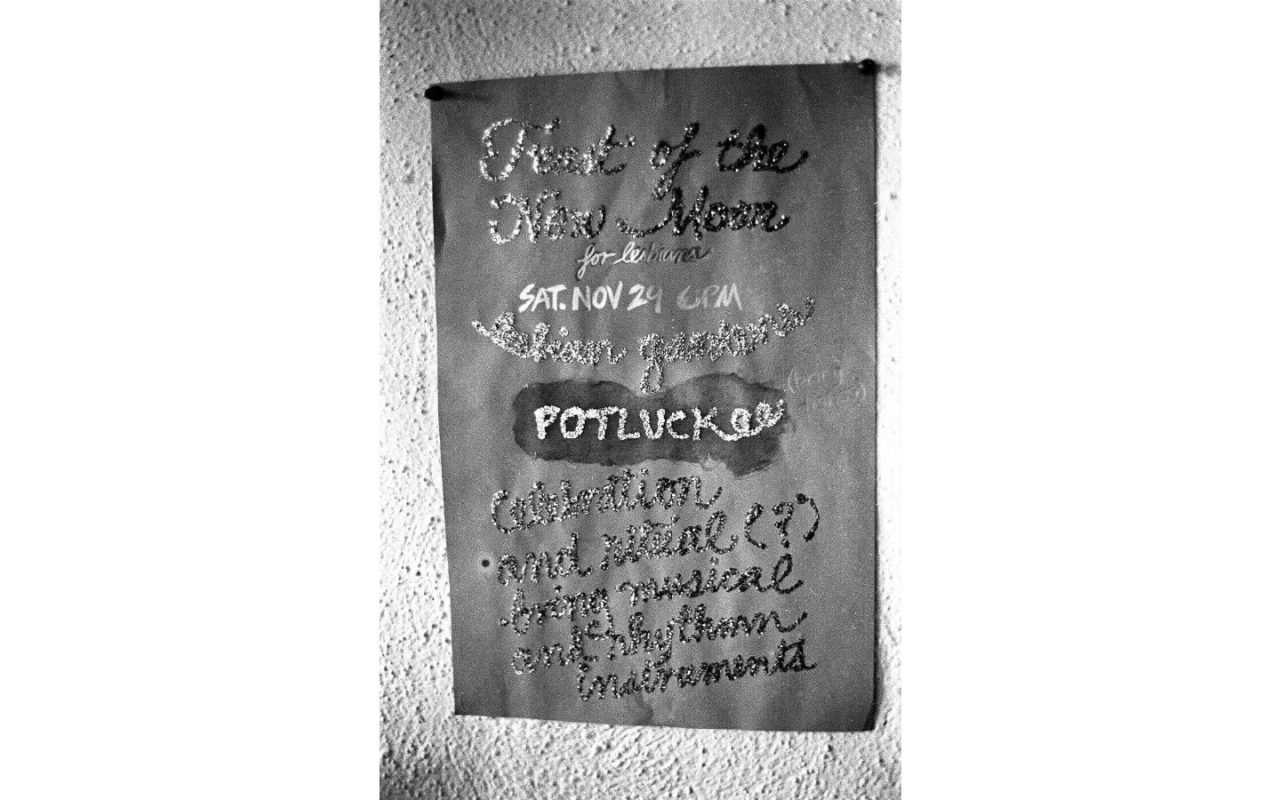 Feast of the
New Moon
for lesbians
SAT. NOV 29 6PM
lesbian gardens
(bring
POTLUCK
Celebration
and ritual (?)
bring musical
and rhythm
instruments